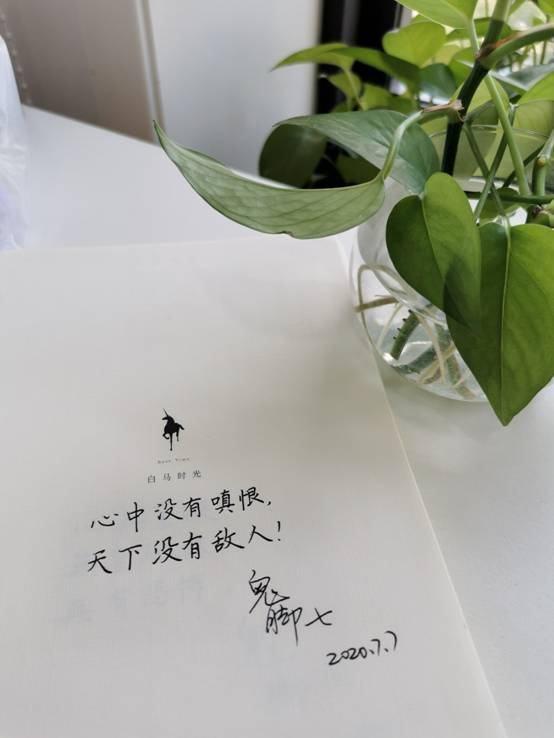 Best Time
白马时光
心中没有嗔恨，
天下没有敌人！
鬼脚七
2020.7.7